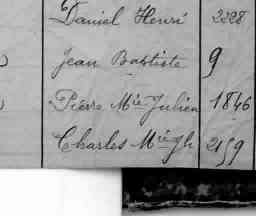 Daniel Henri 2228
Jean Baptiste 9
Pierre Mie Julien 1846
Charles Mie Jh 2159